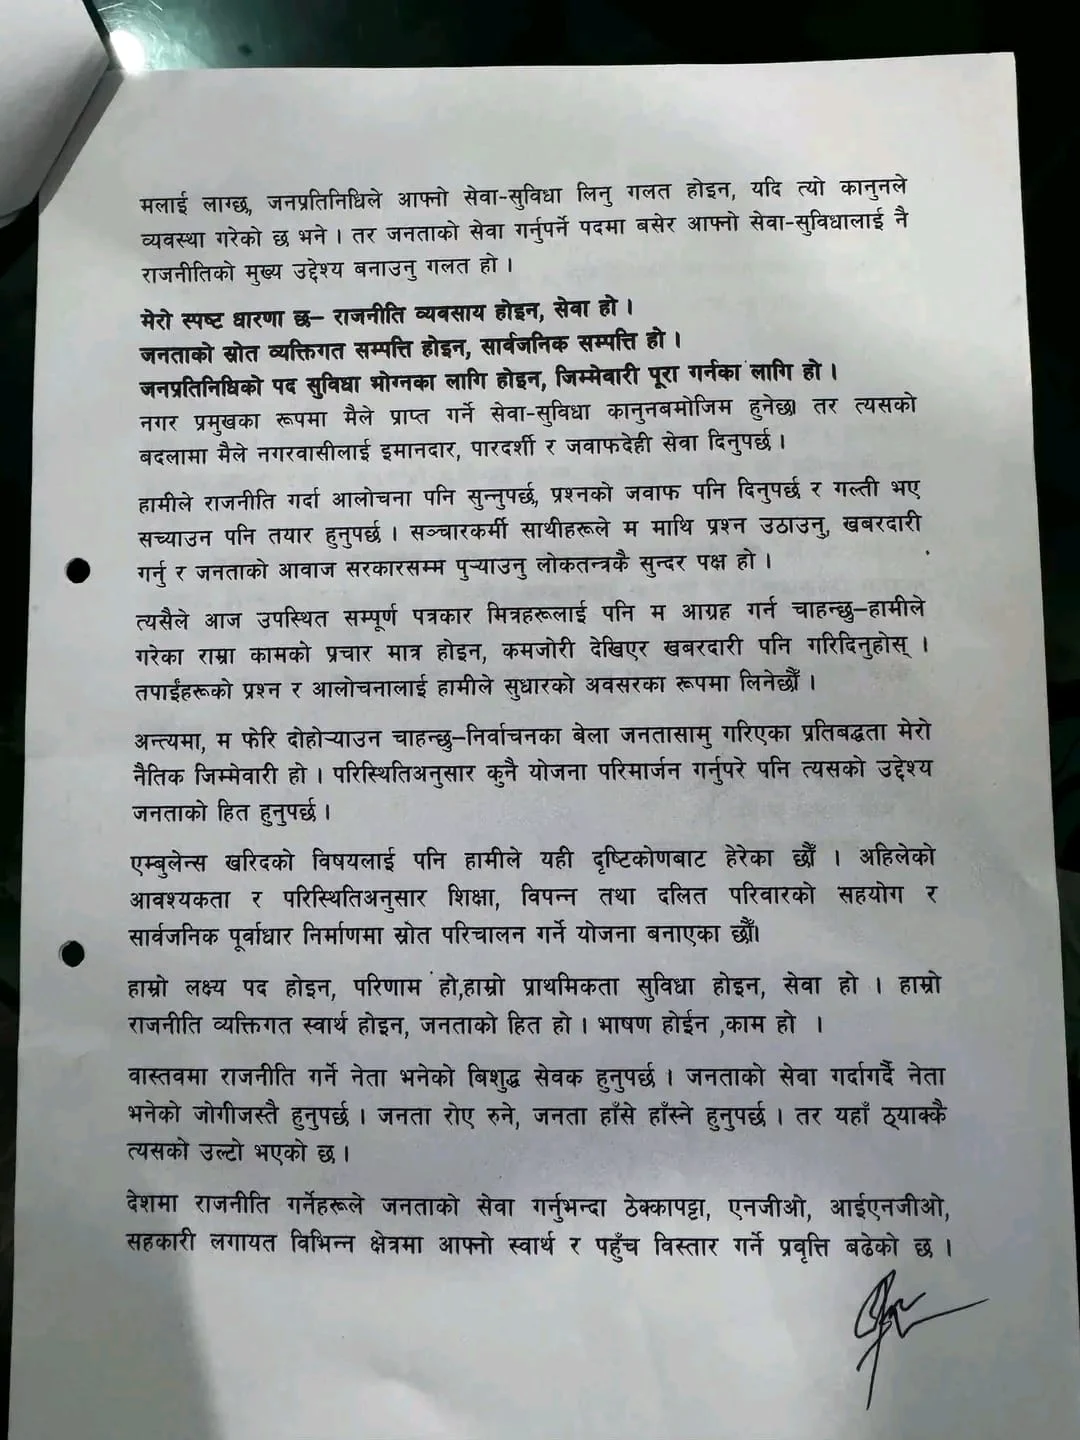 मलाई लाग्छ, जनप्रतिनिधिले आफ्नो सेवा-सुविधा लिनु गलत होइन, यदि त्यो कानुनले
व्यवस्था गरेको छ भने । तर जनताको सेवा गर्नुपर्ने पदमा बसेर आफ्नो सेवा-सुविधालाई नै
राजनीतिको मुख्य उद्देश्य बनाउनु गलत हो ।
मेरो स्पष्ट धारणा छ– राजनीति व्यवसाय होइन, सेवा हो ।
जनताको स्रोत व्यक्तिगत सम्पत्ति होइन, सार्वजनिक सम्पत्ति हो ।
जनप्रतिनिधिको पद सुविधा भोग्नका लागि होइन, जिम्मेवारी पूरा गर्नका लागि हो ।
नगर प्रमुखका रूपमा मैले प्राप्त गर्ने सेवा-सुविधा कानुनबमोजिम हुनेछ। तर त्यसको
बदलामा मैले नगरवासीलाई इमानदार, पारदर्शी र जवाफदेही सेवा दिनुपर्छ ।
हामीले राजनीति गर्दा आलोचना पनि सुन्नुपर्छ, प्रश्नको जवाफ पनि दिनुपर्छ र गल्ती भए
सच्याउन पनि तयार हुनुपर्छ । सञ्चारकर्मी साथीहरूले म माथि प्रश्न उठाउनु, खबरदारी
गर्नु र जनताको आवाज सरकारसम्म पुर्‍याउनु लोकतन्त्रकै सुन्दर पक्ष हो ।
त्यसैले आज उपस्थित सम्पूर्ण पत्रकार मित्रहरूलाई पनि म आग्रह गर्न चाहन्छु–हामीले
गरेका राम्रा कामको प्रचार मात्र होइन, कमजोरी देखिएर खबरदारी पनि गरिदिनुहोस् ।
तपाईंहरूको प्रश्न र आलोचनालाई हामीले सुधारको अवसरका रूपमा लिनेछौँ ।
अन्त्यमा, म फेरि दोहोर्‍याउन चाहन्छु–निर्वाचनका बेला जनतासामु गरिएका प्रतिबद्धता मेरो
नैतिक जिम्मेवारी हो । परिस्थितिअनुसार कुनै योजना परिमार्जन गर्नुपरे पनि त्यसको उद्देश्य
जनताको हित हुनुपर्छ ।
एम्बुलेन्स खरिदको विषयलाई पनि हामीले यही दृष्टिकोणबाट हेरेका छौँ । अहिलेको
आवश्यकता र परिस्थितिअनुसार शिक्षा, विपन्न तथा दलित परिवारको सहयोग र
सार्वजनिक पूर्वाधार निर्माणमा स्रोत परिचालन गर्ने योजना बनाएका छौँ।
हाम्रो लक्ष्य पद होइन, परिणाम हो,हाम्रो प्राथमिकता सुविधा होइन, सेवा हो । हाम्रो
राजनीति व्यक्तिगत स्वार्थ होइन, जनताको हित हो । भाषण होईन ,काम हो ।
वास्तवमा राजनीति गर्ने नेता भनेको बिशुद्ध सेवक हुनुपर्छ । जनताको सेवा गर्दागर्दै नेता
भनेको जोगीजस्तै हुनुपर्छ । जनता रोए रुने, जनता हाँसे हाँस्ने हुनुपर्छ । तर यहाँ ठ्याक्कै
त्यसको उल्टो भएको छ ।
देशमा राजनीति गर्नेहरूले जनताको सेवा गर्नुभन्दा ठेक्कापट्टा, एनजीओ, आईएनजीओ,
सहकारी लगायत विभिन्न क्षेत्रमा आफ्नो स्वार्थ र पहुँच विस्तार गर्ने प्रवृत्ति बढेको छ ।